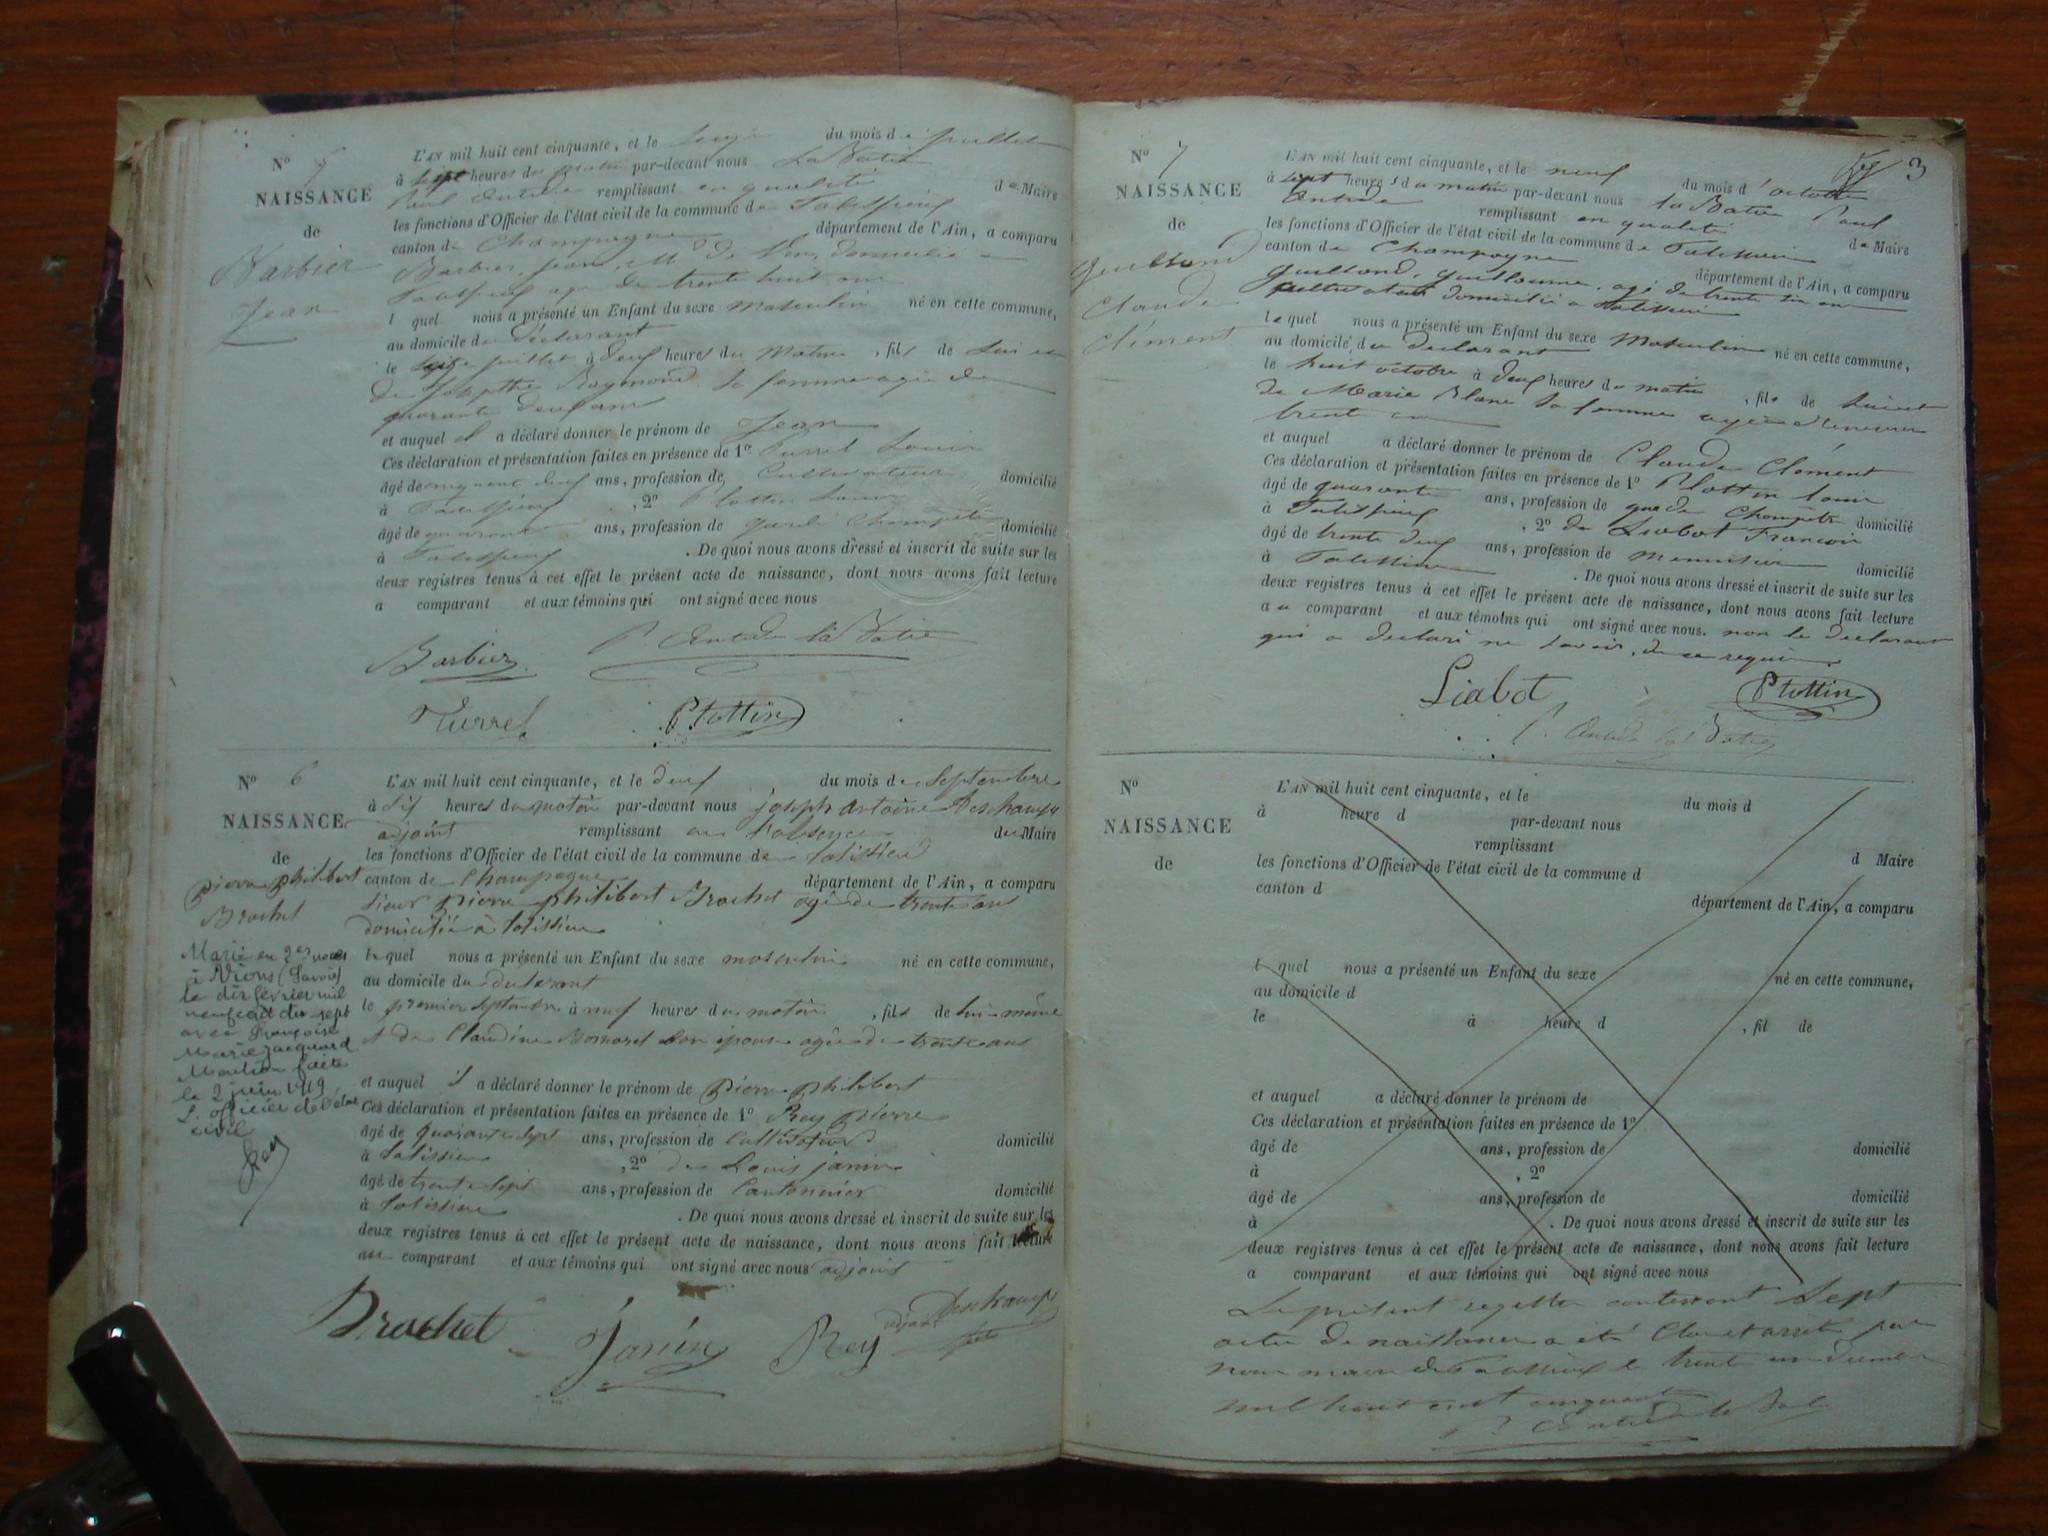 N° 5
NAISSANCE
de
Barbier
Jean
L'AN mil huit cent cinquante, et le du mois de juillet
à sept heures du matin par-devant nous La Batie
Paul Antide remplissant en qualité de Maire
les fonctions d'Officier de l'état civil de la commune de Talissieux
canton de Champagne département de l'Ain, a comparu
Barbier, Jean, domicilié a
Talissieux agé de trente huit ans
l quel nous a présenté un Enfant du sexe Masculin né en cette commune,
au domicile du déclarant
le juillet à deux heures du Matin, fils de Lui et
de Josepthe Raymond sa femme agée de
quarante deux ans
et auquel il a déclaré donner le prénom de Jean
Ces déclaration et présentation faites en présence de 1° Turrel Louis
âgé de cinquante deux ans, profession de Cultivateur domicilié
à Talissieux, 2° Plottin Louis
âgé de quarante ans, profession de garde Champetre domicilié
à Talissieux. De quoi nous avons dressé et inscrit de suite sur les
deux registres tenus à cet effet le présent acte de naissance, dont nous avons fait lecture
a comparant et aux témoins qui ont signé avec nous
Barbier P. Antide la Batie
Turrel Plottin
N° 6
NAISSANCE
de
Pierre philibert
Brochet
Marié en 2es noces
à Vions (Savoie)
le dix février mil
neuf cent dix-sept
avec Françoise
Marie Jacquard
Mention faite
le 2 juin 1919
L'officier de l'état
civil
Rey
L'AN mil huit cent cinquante, et le deux du mois de Septembre
à six heures du matin par-devant nous joseph antoine Deschamps
adjoint remplissant en l'absence du Maire
les fonctions d'Officier de l'état civil de la commune de talissieu
canton de Champagne département de l'Ain, a comparu
sieur pierre philibert Brochet agé de trente ans
domicilié à talissieu
le quel nous a présenté un Enfant du sexe masculin né en cette commune,
au domicile du déclarant
le premier septembre à neuf heures du matin, fils de lui-même
et de Claudine Bornarel son épouse agée de trente ans
et auquel il a déclaré donner le prénom de pierre philibert
Ces déclaration et présentation faites en présence de 1° Rey pierre
âgé de quarante sept ans, profession de Cultivateur domicilié
à talissieu, 2° de Louis janin
âgé de trente sept ans, profession de Cantonnier domicilié
à talissieu. De quoi nous avons dressé et inscrit de suite sur les
deux registres tenus à cet effet le présent acte de naissance, dont nous avons fait lecture
au comparant et aux témoins qui ont signé avec nous adjoint
Brochet Janin Rey adjoint Deschamps
Rey 3
N° 7
NAISSANCE
de
Guilland
Claude
Clément
L'AN mil huit cent cinquante, et le neuf du mois d'octobre
à sept heures du matin par-devant nous la Batie Paul
Antide remplissant en qualité de Maire
les fonctions d'Officier de l'état civil de la commune de Talissieu
canton de Champagne département de l'Ain, a comparu
Guilland, Guillaume, agé de trente six ans
cultivateur domicilié a Talissieu
le quel nous a présenté un Enfant du sexe Masculin né en cette commune,
au domicile du déclarant
le huit octobre à deux heures du matin, fils de lui et
de Marie Blanc sa femme agée d'environ
trente ans
et auquel a déclaré donner le prénom de Claude Clément
Ces déclaration et présentation faites en présence de 1° Plottin Louis
âgé de quarante ans, profession de garde Champêtre domicilié
à Talissieux, 2° de Liabot François
âgé de trente deux ans, profession de Menuisier domicilié
à Talissieu. De quoi nous avons dressé et inscrit de suite sur les
deux registres tenus à cet effet le présent acte de naissance, dont nous avons fait lecture
au comparant et aux témoins qui ont signé avec nous. non le déclarant
qui a déclaré ne savoir, de ce requis.
Liabot Plottin
P. Antide la Batie
N°
NAISSANCE
de
L'AN mil huit cent cinquante, et le du mois d
à heure d par-devant nous
remplissant d Maire
les fonctions d'Officier de l'état civil de la commune d
canton d département de l'Ain, a comparu
l quel nous a présenté un Enfant du sexe né en cette commune,
au domicile d
le à heure d, fil de
et auquel a déclaré donner le prénom de
Ces déclaration et présentation faites en présence de 1°
âgé de ans, profession de domicilié
à, 2°
âgé de ans, profession de domicilié
à. De quoi nous avons dressé et inscrit de suite sur les
deux registres tenus à cet effet le présent acte de naissance, dont nous avons fait lecture
a comparant et aux témoins qui ont signé avec nous
Le présent registre contenant Sept
actes de naissance a été Clos et arrêté par
nous maire de Talissieux le trente un Décembre
mil huit cent cinquante
P. Antide la Batie